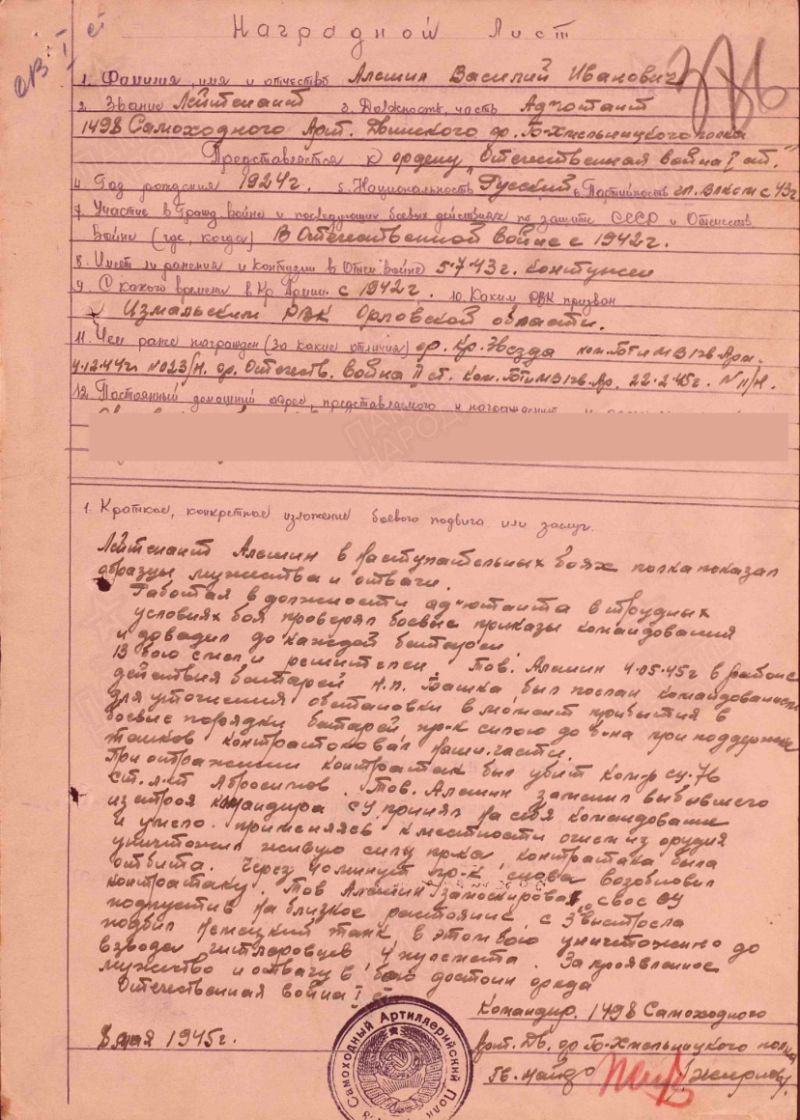 Наградной Лист
ОВ: I ст
376
1. Фамилия, имя и отчество Алешин Василий Иванович
2. Звание Лейтенант 3. Должность, часть Адъютант
1498 Самоходного Арт. Двинского ор. Б-Хмельницкого полка
Представляется к ордену "Отечественная война I ст."
4. Год рождения 1924г. 5. Национальность Русский 6. Партийность чл. ВЛКСМ с 43г
7. Участие в гражд. войне и последующих боевых действиях по защите СССР и Отечеств.
Войне (где, когда) В Отечественной войне с 1942г.
8. Имеет ли ранения и контузии в Отеч войне 5.7.43г. Контужен
9. С какого времени в Кр. Армии с 1942г. 10. Каким РВК призван
Измальским РВК Орловской области.
11. Чем ранее награжден (за какие отличия) ор. Кр. Звезда
4.12.44г. №023/н. ор. Отечеств. Война II ст. 22.2.45г. №11/н.
12. Постоянный домашний адрес, представляемого к награждению
1. Краткое, конкретное изложение боевого подвига или заслуг.
Лейтенант Алешин в наступательных боях полка показал
образцы мужества и отваги.
Работая в должности адъютанта в трудных
условиях боя проверял боевые приказы командования
и доводил до каждой батареи
В бою смел и решителен. Тов. Алешин 4.05.45г в районе
действия батарей н.п. Башка был послан командованием
для уточнения обстановки в момент прибытия в
боевые порядки батарей пр-к силою до б-на при поддержке
танков контратаковал наши части.
При отражении контратак был убит ком-р СУ-76
ст. л-т Абросимов. Тов. Алешин заменил выбывшего
из строя командира СУ принял на себя командование
и умело применяясь к местности огнем из орудия
уничтожил живую силу пр-ка, контратака была
отбита. Через 40 минут пр-к снова возобновил
контратаку. Тов Алешин замаскировал свое СУ
подпустив на близкое расстояние, с 3 выстрела
подбил немецкий танк, в этом бою уничтожено до
взвода гитлеровцев, 4 пулемета. За проявленное
мужество и отвагу в бою достоин орд-на
Отечественная война I ст
Командир 1498 Самоходного
8 мая 1945г.
Арт. Дв. ор Б-Хмельницкого полка
Гв. Майор
Самоходный Артиллерийский Полк